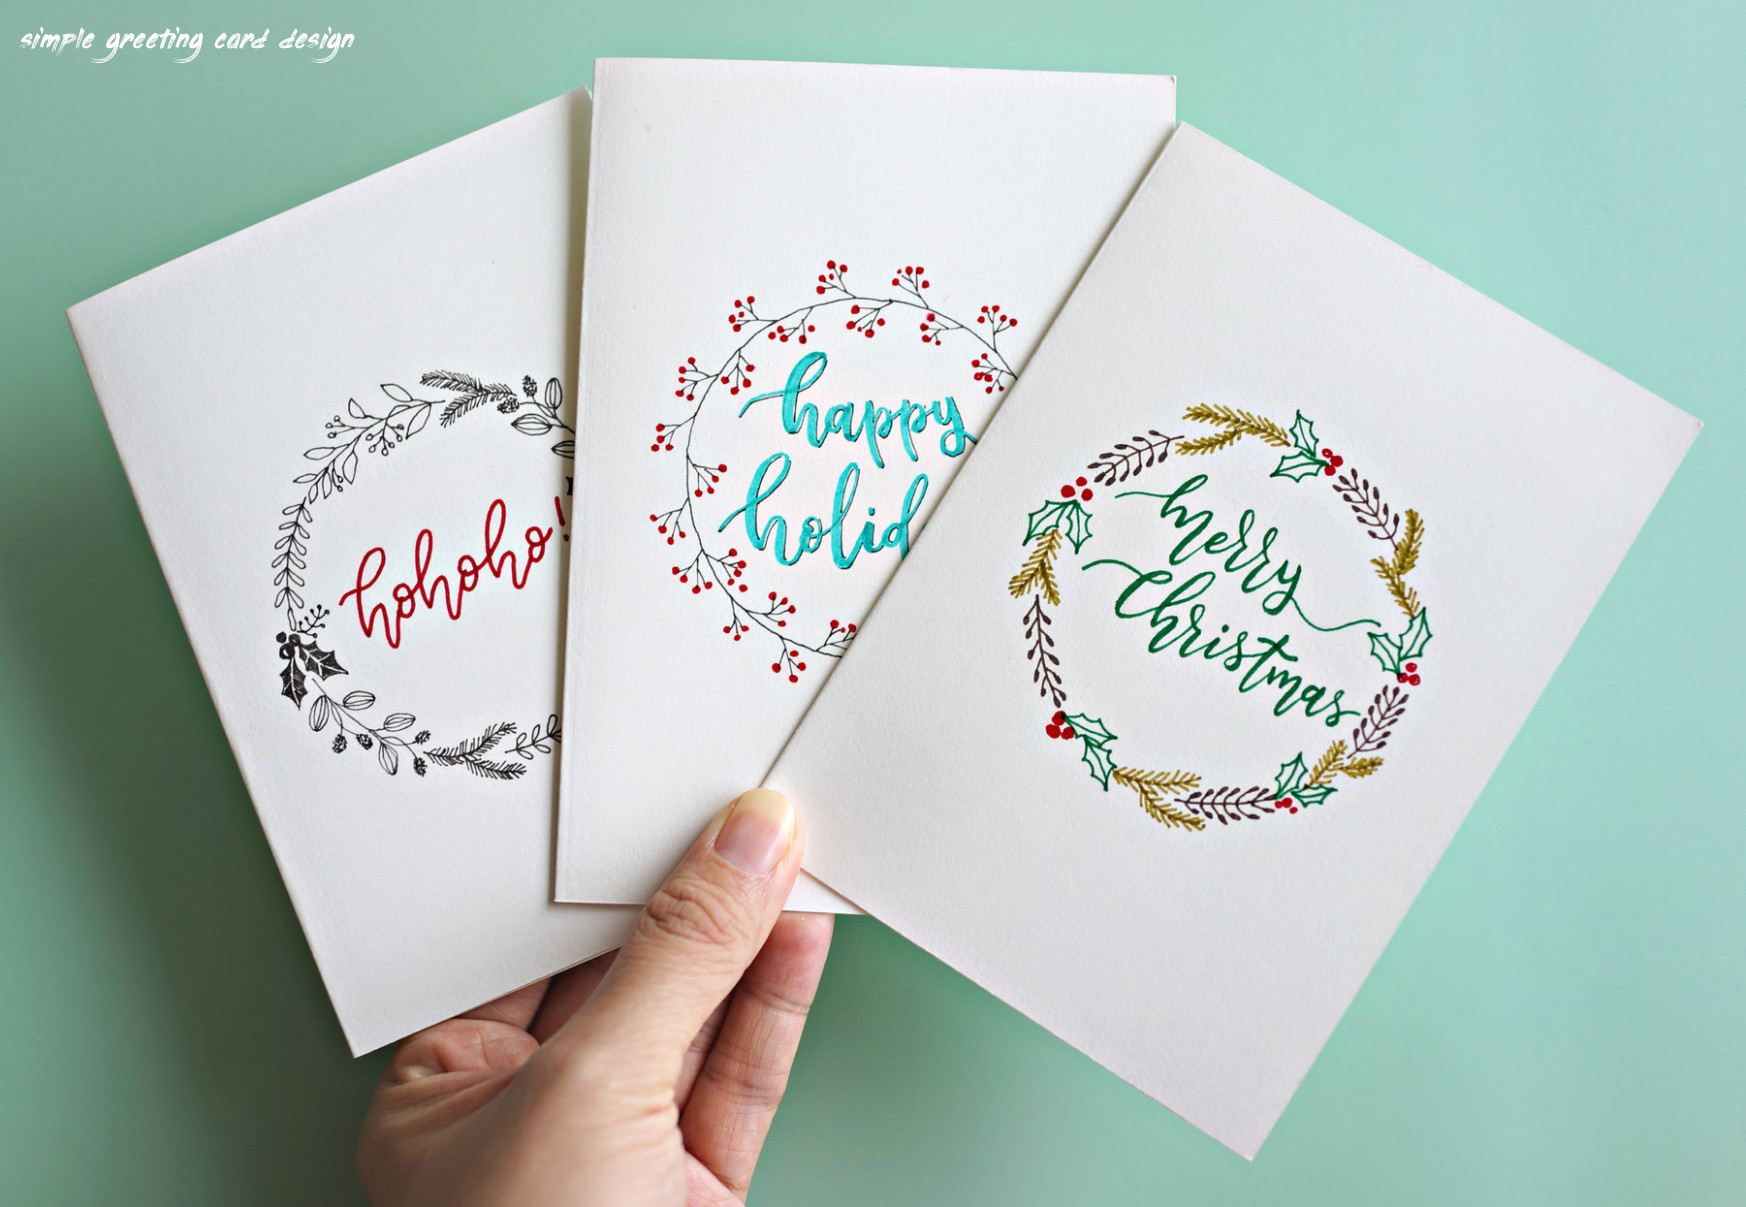 simple greeting card design
hohoho!
happy
holid
merry
christmas